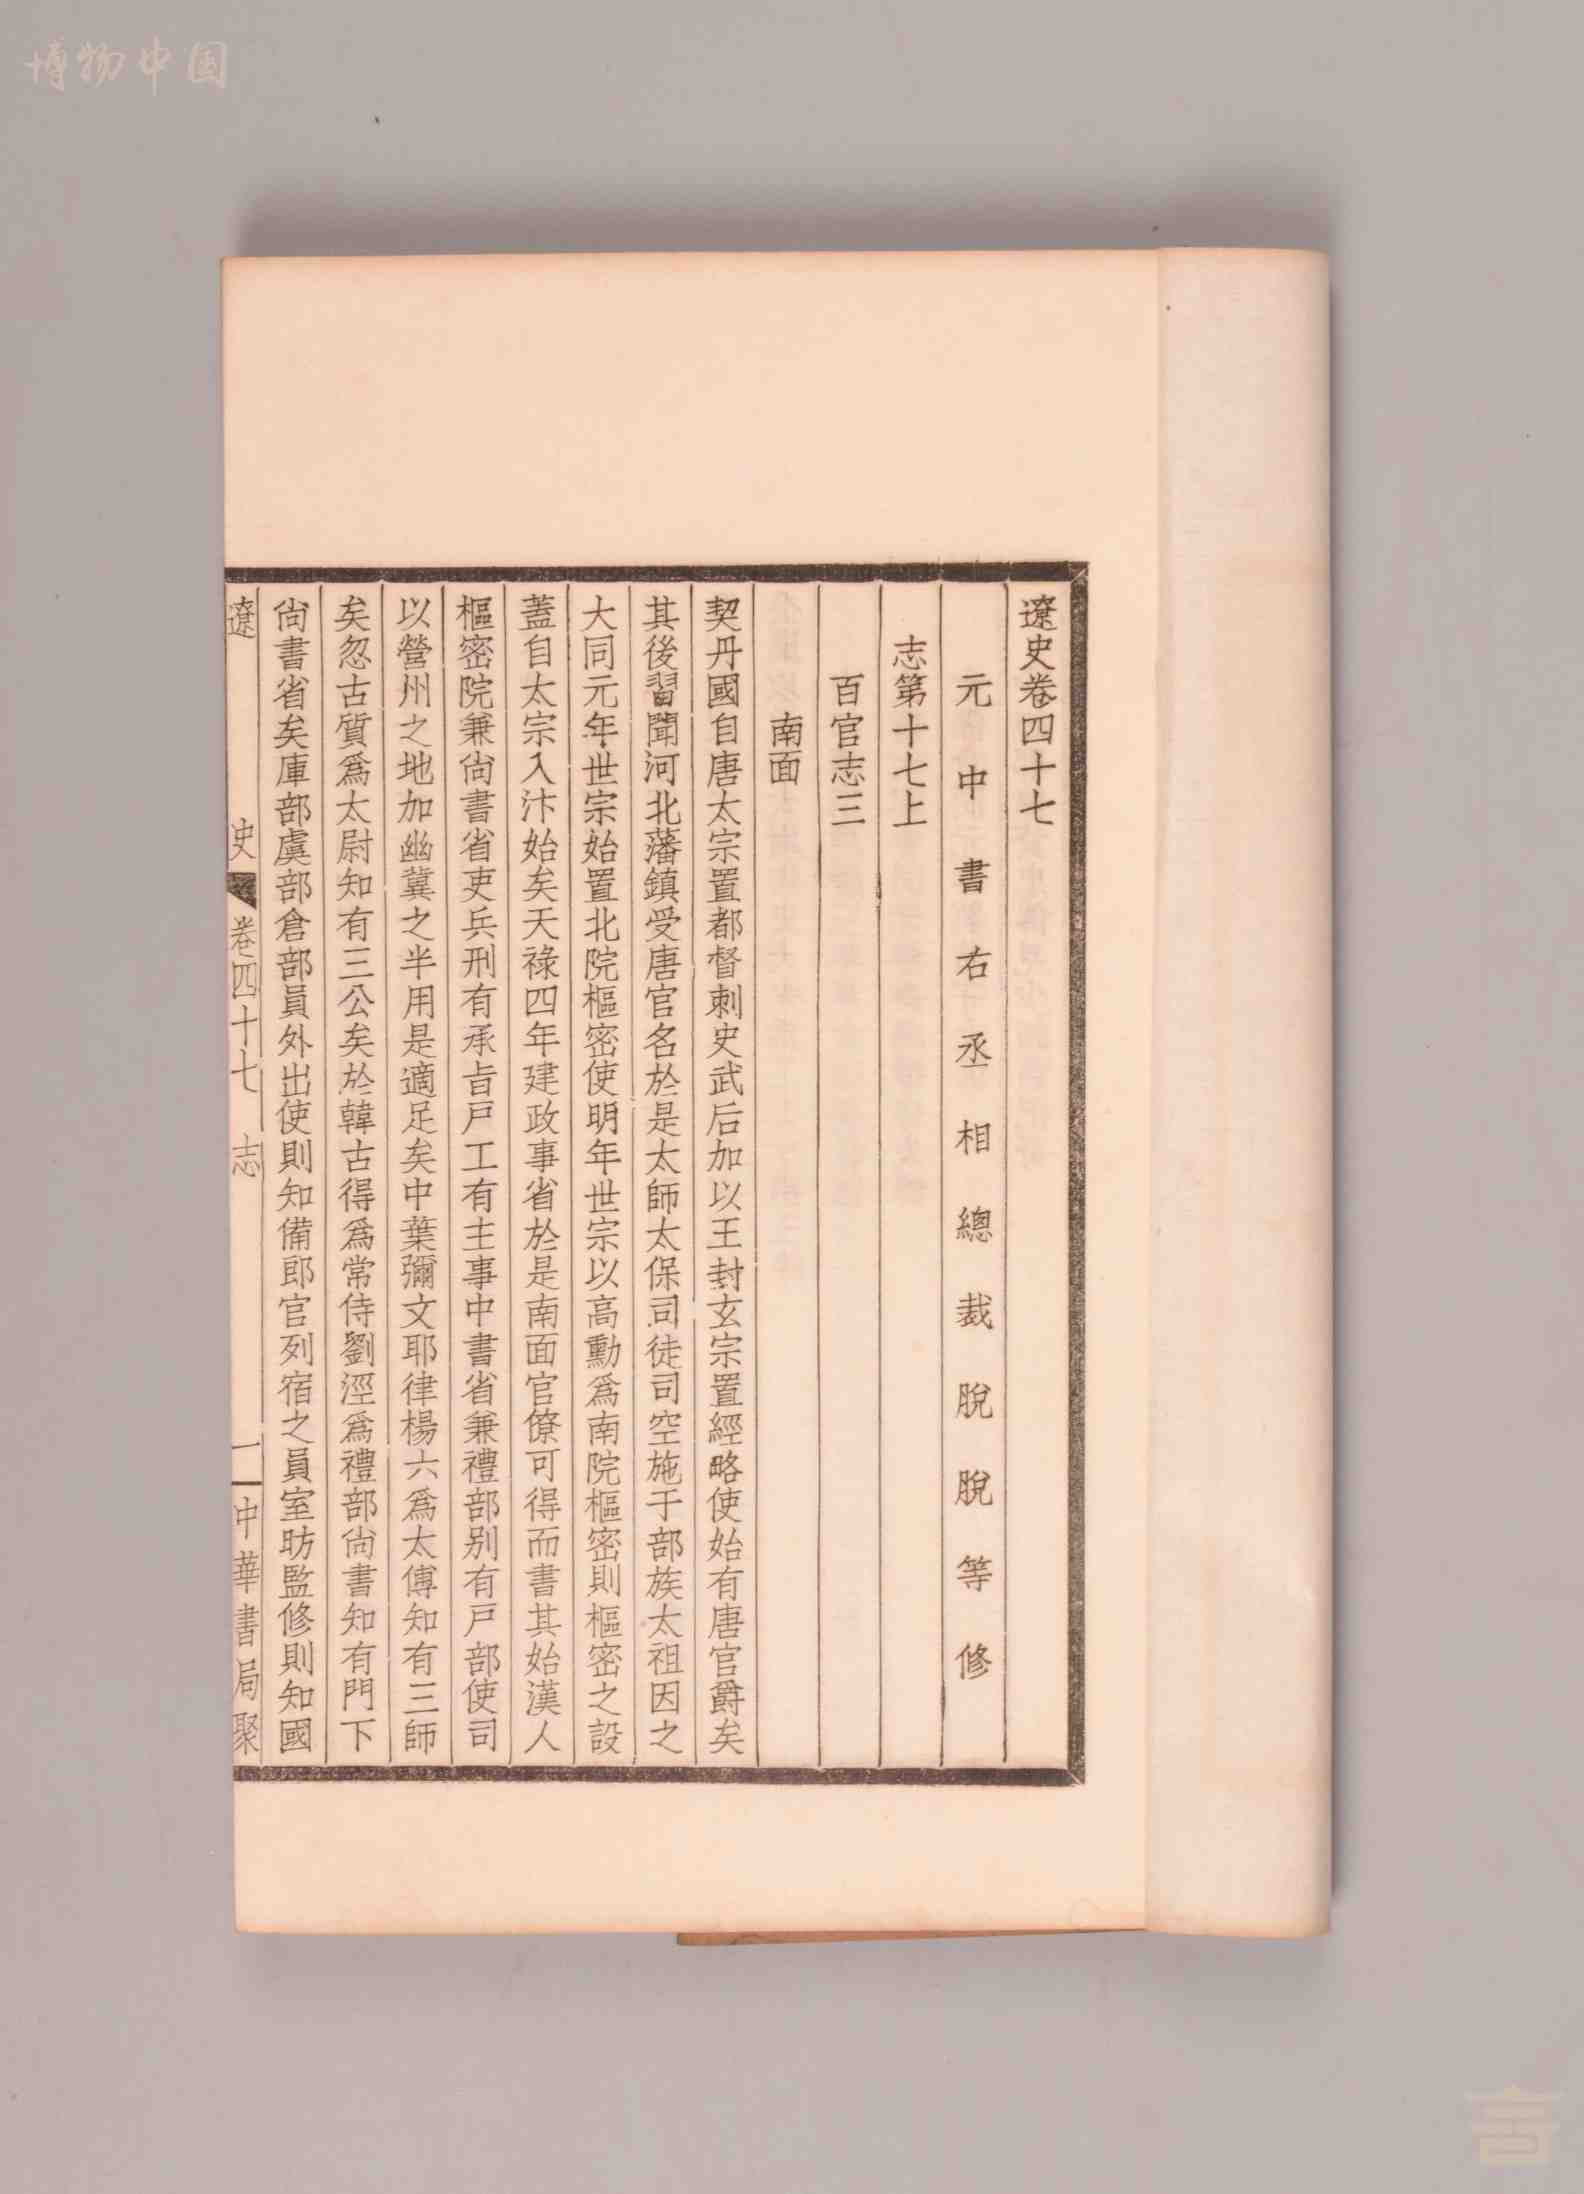 博物中国
遼史卷四十七
元中書右丞相總裁脫脫等修
志第十七上
百官志三
南面
契丹國自唐太宗置都督刺史武后加以王封玄宗置經略使始有唐官爵矣
其後習聞河北藩鎮受唐官名於是太師太保司徒司空施于部族太祖因之
大同元年世宗始置北院樞密使明年世宗以高勳爲南院樞密則樞密之設
蓋自太宗入汴始矣天祿四年建政事省於是南面官僚可得而書其始漢人
樞密院兼尙書省吏兵刑有承旨戶工有主事中書省兼禮部别有戶部使司
以營州之地加幽冀之半用是適足矣中葉彌文耶律楊六爲太傅知有三師
矣忽古質爲太尉知有三公矣於韓古得爲常侍劉涇爲禮部尙書知有門下
尙書省矣庫部虞部倉部員外出使則知備郎官列宿之員室昉監修則知國
遼史 卷四十七 志 一 中華書局聚